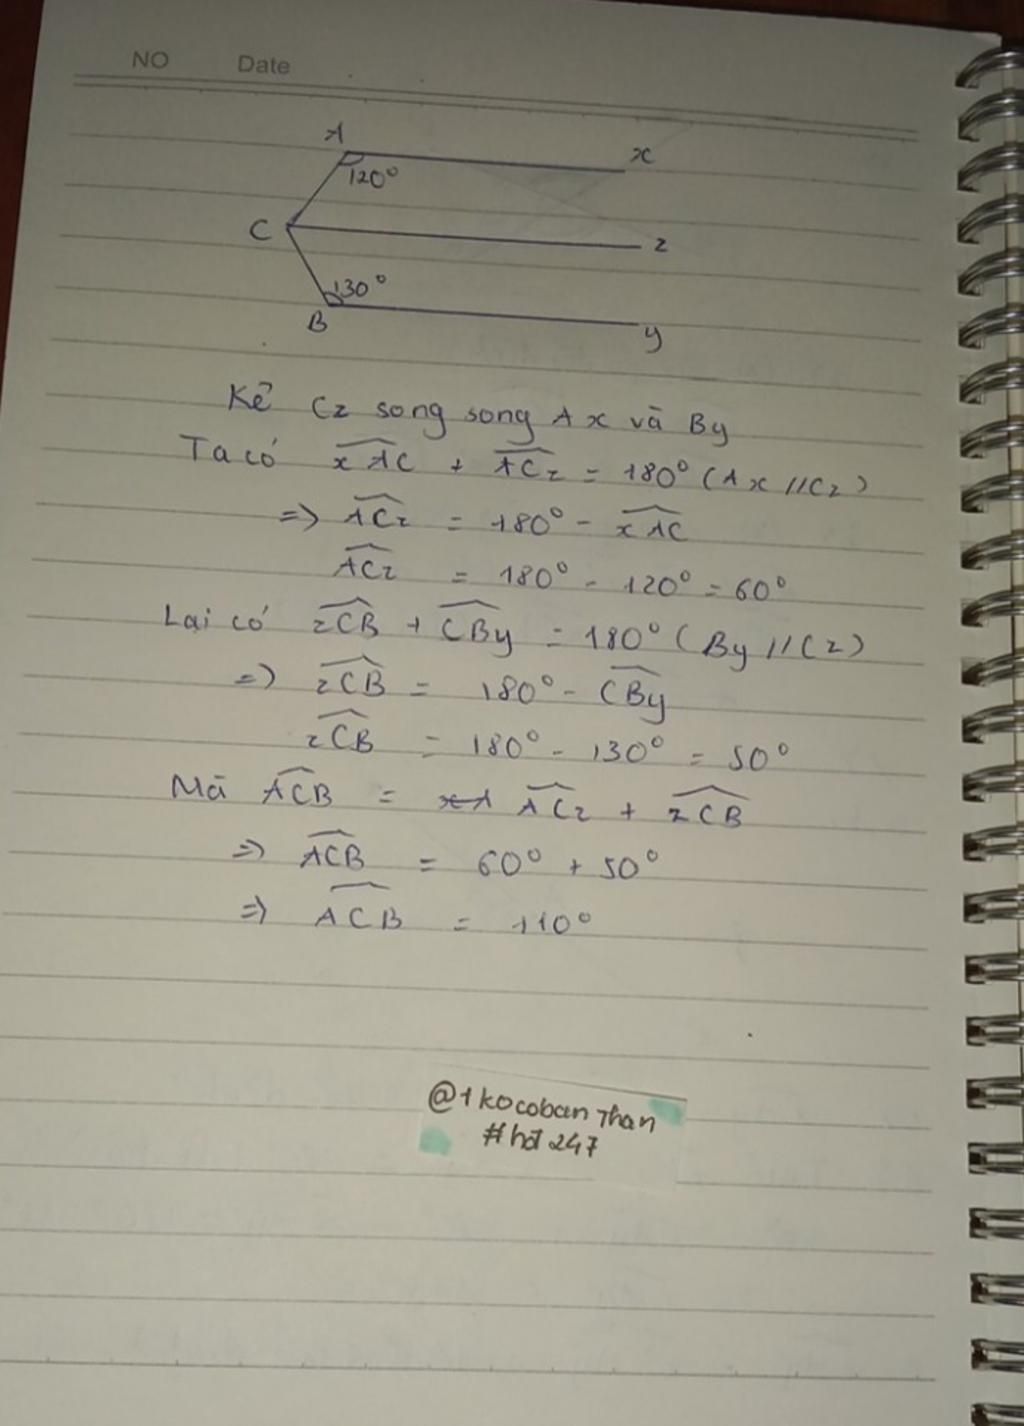 NO Date
A
x
120°
C
z
130°
B
y
Kẻ Cz song song Ax và By
Ta có xAC + ACz = 180° (Ax // Cz)
=> ACz = 180° - xAC
ACz = 180° - 120° = 60°
Lại có zCB + CBy = 180° (By // Cz)
=> zCB = 180° - CBy
zCB = 180° - 130° = 50°
Mà ACB = ACz + zCB
=> ACB = 60° + 50°
=> ACB = 110°
@1kocobanThan
#hđ247